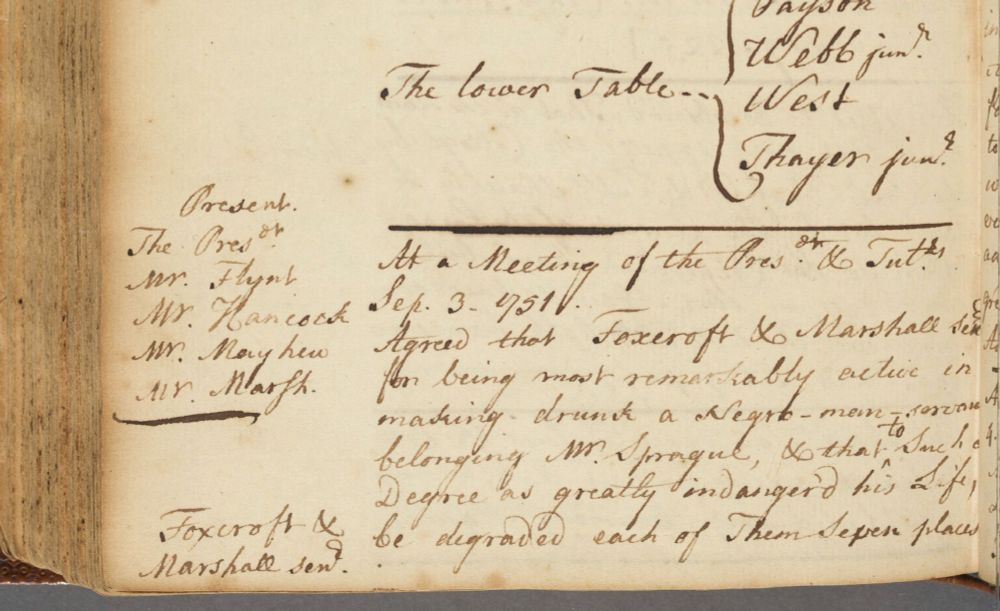 Payson
Webb junr.
The lower Table --
West
Thayer junr.
Present.
The Presdt.
Mr. Flynt
Mr. Hancock
Mr. Mayhew
Mr. Marsh.
At a Meeting of the Presdt. & Tutrs.
Sep. 3. 1751.
Agreed that Foxcroft & Marshall senr
for being most remarkably active in
making drunk a Negro-man-servant
belonging Mr. Sprague, & that to Such a
Degree as greatly indanger'd his Life,
be degraded each of Them Seven places
Foxcroft &
Marshall senr.